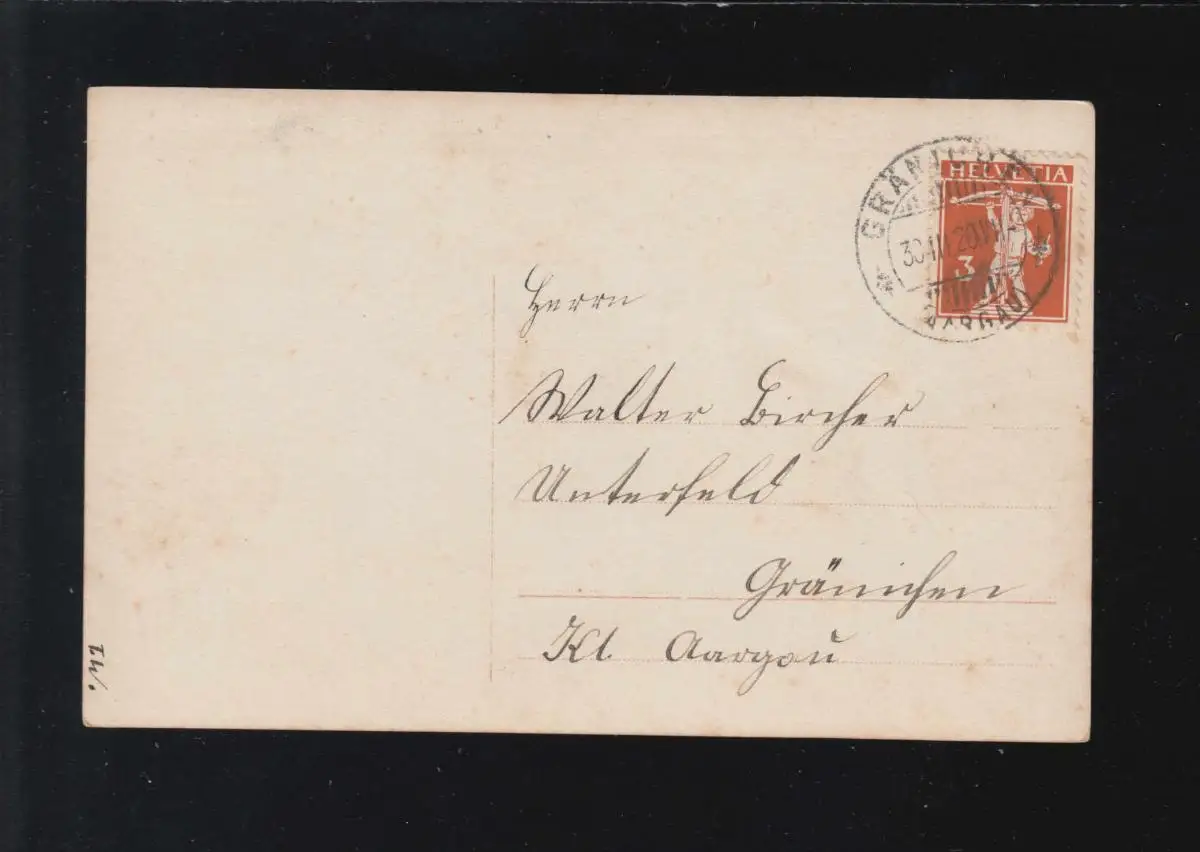 HELVETIA
3
GRÄNICHEN
(AARGAU)
Herrn
Walter Bircher
Unterfeld
Gränichen
Kt. Aargau